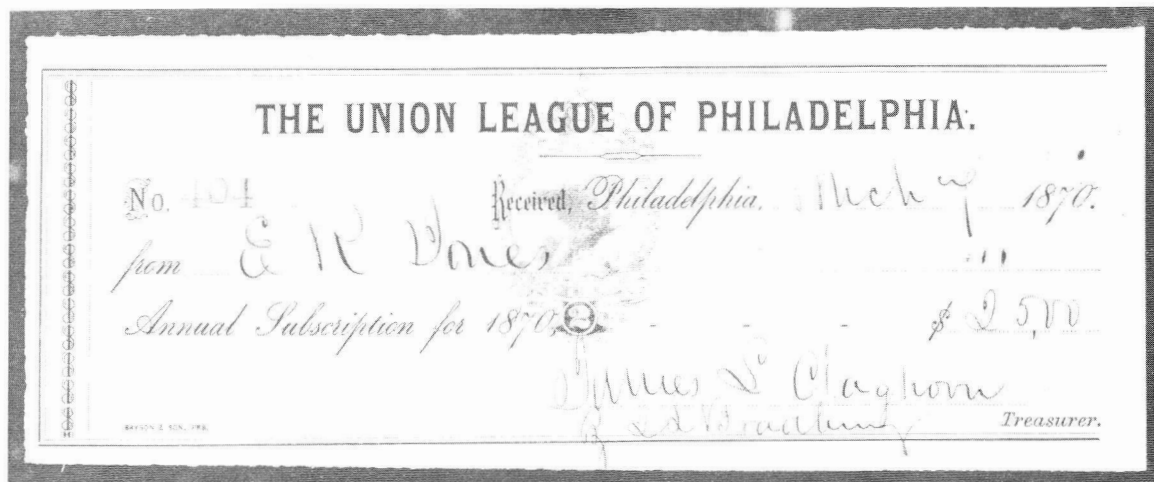 THE UNION LEAGUE OF PHILADELPHIA.
No. 404 Received, Philadelphia, Mch 7 1870.
from E R Jones
Annual Subscription for 1870, 2 - - - - $ 25,00
James L Claghorn
Treasurer.